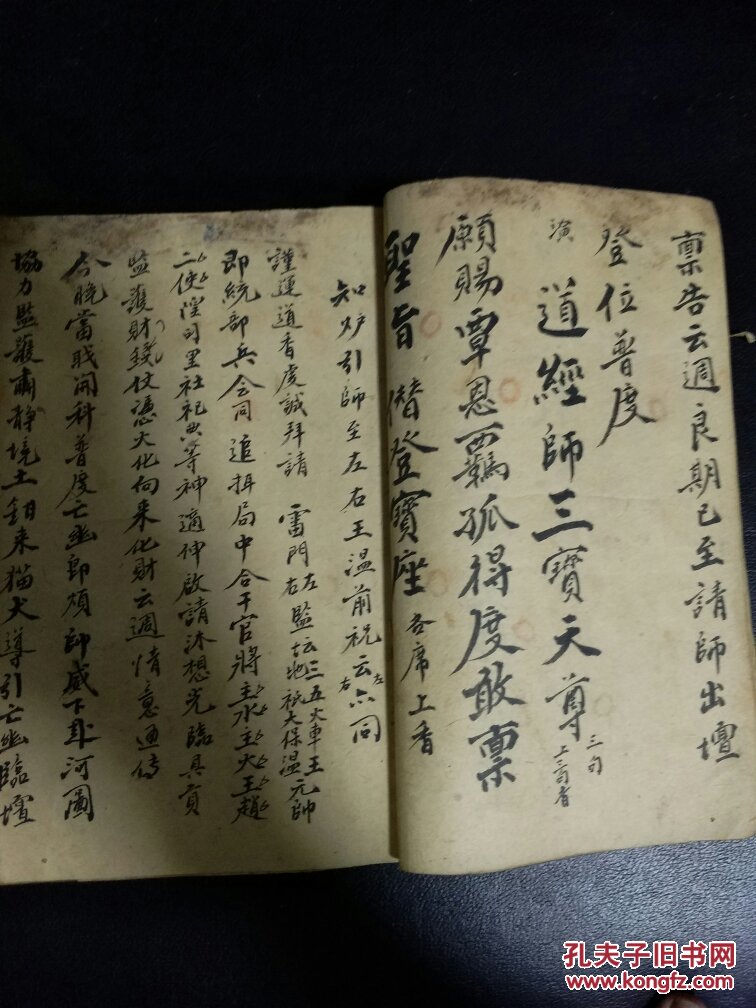 稟告云週良期已至請師出壇
登位普度
演 道經師三寶天尊 三句 上三旬香
願賜覃恩羈孤得度敢稟
聖旨 僭登寶座 各席上香
知炉引師至左右王温前祝云 左右 仝同
謹運道香虔誠拜請 雷門 左右 監坛 三五火車王 地祇大保温 元帥
即統部兵仝同 追捉局中合干官將主水主火王趙
二使 里社祀典等神適伸啟請沐想光臨具有
監護財錢仗憑火化向来化財云週情意通傳
今晚當職開科普度亡幽即煩帥威下 河圖
協力監護肅静境土 来猫犬導引亡幽臨壇
孔夫子旧书网
www.kongfz.com